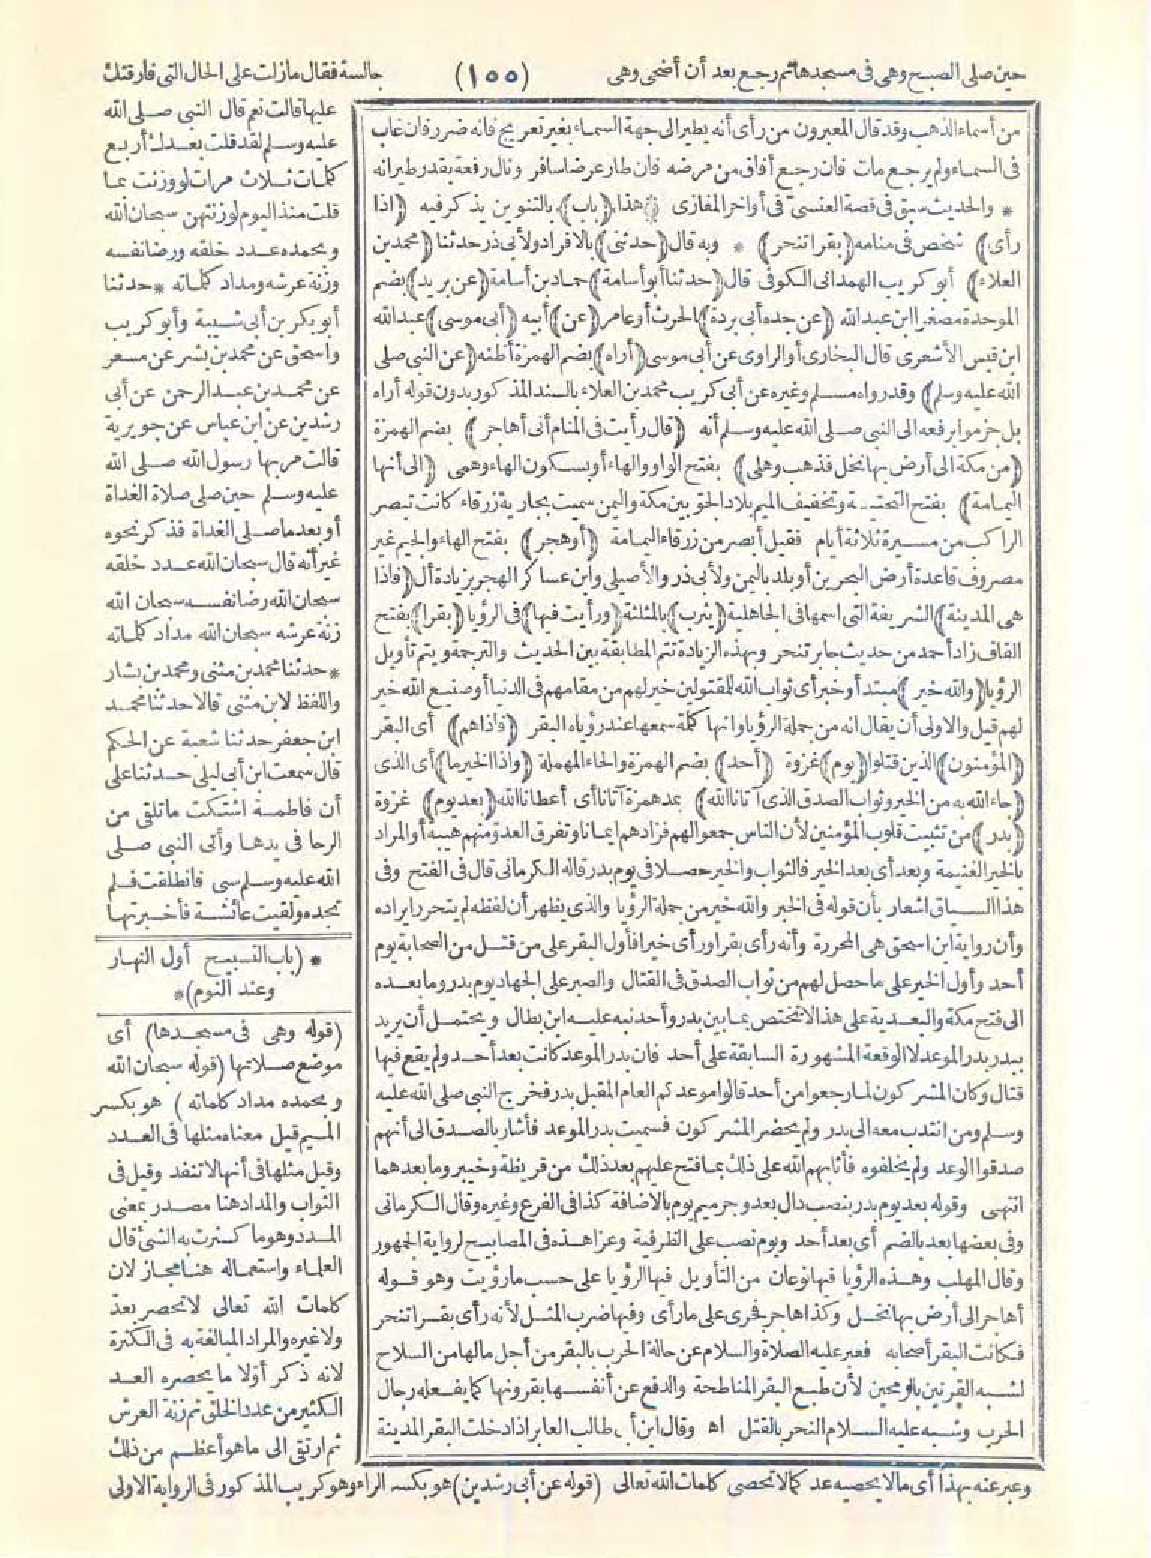 حين صلى الصبح وهى فى مسجدها ثم رجع بعد أن أضحى وهى (١٥٥) جالسة فقال مازلت على الحال التى فارقتك
من أسماء الذهب وقد قال المعبرون من رأى أنه يطير الى جهة السماء بغير تعريج فانه ضرر فان غاب
فى السماء ولم يرجع مات فان رجع أفاق من مرضه فان طار عرضا سافر ونال رفعة بقدر طيرانه
* والحديث سبق فى قصة العنسىّ فى أواخر المغازى هذا (باب) بالتنوين يذكر فيه (اذا
رأى) شخص فى منامه (بقرا تنحر) * وبه قال (حدثنى) بالافراد ولأبى ذر حدثنا (محمد بن
العلاء) أبو كريب الهمدانى الكوفى قال (حدثنا أبو أسامة) حماد بن أسامة (عن بريد) بضم
الموحدة مصغرا ابن عبد الله (عن جده أبى بردة) الحرث أو عامر (عن) أبيه (أبى موسى) عبد الله
ابن قيس الأشعرى قال البخارى أو الراوى عن أبى موسى (أراه) بضم الهمزة أظنه (عن النبى صلى
الله عليه وسلم) وقد رواه مسلم وغيره عن أبى كريب محمد بن العلاء بالسند المذكور بدون قوله أراه
بل جزموا برفعه الى النبى صلى الله عليه وسلم أنه (قال رأيت فى المنام أنى أهاجر) بضم الهمزة
(من مكة الى أرض بها نخل فذهب وهلى) بفتح الواو والهاء أو بسكون الهاء وهمى (الى أنها
اليمامة) بفتح التحتية وتخفيف الميم بلاد الجوّ بين مكة واليمن سميت بجارية زرقاء كانت تبصر
الراكب من مسيرة ثلاثة أيام فقيل أبصر من زرقاء اليمامة (أو هجر) بفتح الهاء والجيم غير
مصروف قاعدة أرض البحرين أو بلد باليمن ولأبى ذر والأصيلى وابن عساكر الهجر بزيادة أل (فاذا
هى المدينة) الشريفة التى اسمها فى الجاهلية (يثرب) بالمثلثة (ورأيت فيها) فى الرؤيا (بقرا) بفتح
القاف زاد أحمد من حديث جابر تنحر وبهذه الزيادة تتم المطابقة بين الحديث والترجمة ويتم تأويل
الرؤيا (والله خير) مبتدأ وخبر أى ثواب الله للمقتولين خير لهم من مقامهم فى الدنيا أو صنيع الله خير
لهم قيل والاولى أن يقال انه من جملة الرؤيا وانها كلمة سمعها عند رؤياه البقر (فاذا هم) أى البقر
(المؤمنون) الذين قتلوا (يوم) غزوة (أحد) بضم الهمزة والحاء المهملة (واذا الخير ما) أى الذى
(جاء الله به من الخير وثواب الصدق الذى آتانا الله) بمد همزة آتانا أى أعطانا الله (بعد يوم) غزوة
(بدر) من تثبيت قلوب المؤمنين لأن الناس جمعوا لهم فزادهم ايمانا وتفرق العدو منهم هيبة أو المراد
بالخير الغنيمة وبعد أى بعد الخير فالثواب والخير حصلا فى يوم بدر قاله الكرمانى قال فى الفتح وفى
هذا السياق اشعار بأن قوله فى الخبر والله خير من جملة الرؤيا والذى يظهر أن لفظه لم يتحرر ايراده
وأن رواية ابن اسحق هى المحررة وأنه رأى بقرا ورأى خيرا فأول البقر على من قتل من الصحابة يوم
أحد وأول الخير على ما حصل لهم من ثواب الصدق فى القتال والصبر على الجهاد يوم بدر وما بعده
الى فتح مكة والبعدية على هذا لا تختص بما بين بدر وأحد نبه عليه ابن بطال ويحتمل أن يريد
ببدر بدر الموعد لا الوقعة المشهورة السابقة على أحد فان بدر الموعد كانت بعد أحد ولم يقع فيها
قتال وكان المشركون لما رجعوا من أحد قالوا موعدكم العام المقبل بدر فخرج النبى صلى الله عليه
وسلم ومن انتدب معه الى بدر ولم يحضر المشركون فسميت بدر الموعد فأشار بالصدق الى أنهم
صدقوا الوعد ولم يخلفوه فأثابهم الله على ذلك بما فتح عليهم بعد ذلك من قريظة وخيبر وما بعدهما
انتهى وقوله بعد يوم بدر بنصب دال بعد وجر ميم يوم بالاضافة كذا فى الفرع وغيره وقال الكرمانى
وفى بعضها بعد بالضم أى بعد أحد ويوم نصب على الظرفية وعزا هذه فى المصابيح لرواية الجمهور
وقال المهلب وهذه الرؤيا فيها نوعان من التأويل فيها الرؤيا على حسب ما رؤيت وهو قوله
أهاجر الى أرض بها نخل وكذا هاجر فجرى على ما رأى وفيها ضرب المثل لأنه رأى بقرا تنحر
فكانت البقر أصحابه فعبر عليه الصلاة والسلام عن حالة الحرب بالبقر من أجل مالها من السلاح
لشبه القرنين بالرمحين لأن طبع البقر المناطحة والدفع عن أنفسها بقرونها كما يفعله رجال
الحرب وشبه عليه السلام النحر بالقتل اه وقال ابن أبى طالب العابر اذا دخلت البقر المدينة
عليها قالت نعم قال النبى صلى الله
عليه وسلم لقد قلت بعدك أربع
كلمات ثلاث مرات لو وزنت بما
قلت منذ اليوم لوزنتهن سبحان الله
وبحمده عدد خلقه ورضا نفسه
وزنة عرشه ومداد كلماته * حدثنا
أبو بكر بن أبى شيبة وأبو كريب
واسحق عن محمد بن بشر عن مسعر
عن محمد بن عبد الرحمن عن أبى
رشدين عن ابن عباس عن جويرية
قالت مر بها رسول الله صلى الله
عليه وسلم حين صلى صلاة الغداة
أو بعد ما صلى الغداة فذكر نحوه
غير أنه قال سبحان الله عدد خلقه
سبحان الله رضا نفسه سبحان الله
زنة عرشه سبحان الله مداد كلماته
* حدثنا محمد بن مثنى ومحمد بن بشار
واللفظ لابن مثنى قالا حدثنا محمد
ابن جعفر حدثنا شعبة عن الحكم
قال سمعت ابن أبى ليلى حدثنا على
أن فاطمة اشتكت ما تلقى من
الرحا فى يدها وأتى النبى صلى
الله عليه وسلم سبى فانطلقت فلم
تجده ولقيت عائشة فأخبرتها
* (باب التسبيح أول النهار
وعند النوم) *
(قوله وهى فى مسجدها) أى
موضع صلاتها (قوله سبحان الله
وبحمده مداد كلماته) هو بكسر
الميم قيل معناه مثلها فى العدد
وقيل مثلها فى أنها لا تنفد وقيل فى
الثواب والمداد هنا مصدر بمعنى
المدد وهو ما كثرت به الشئ قال
العلماء واستعماله هنا مجاز لان
كلمات الله تعالى لا تحصر بعدّ
ولا غيره والمراد المبالغة به فى الكثرة
لانه ذكر أوّلا ما يحصره العد
الكثير من عدد الخلق ثم زنة العرش
ثم ارتقى الى ما هو أعظم من ذلك
وعبر عنه بهذا أى ما لا يحصيه عد كما لا تحصى كلمات الله تعالى (قوله عن أبى رشدين) هو بكسر الراء وهو كريب المذكور فى الرواية الاولى